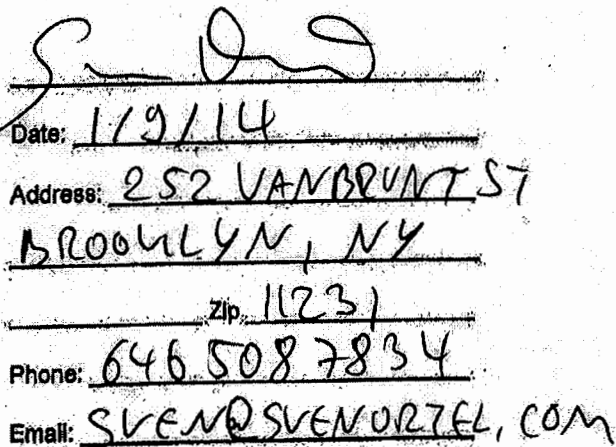 Date: 1/9/14
Address: 252 VANBRUNT ST
BROOKLYN, NY
Zip 11231
Phone: 646 508 7834
Email: SVEN@SVENORTEL.COM